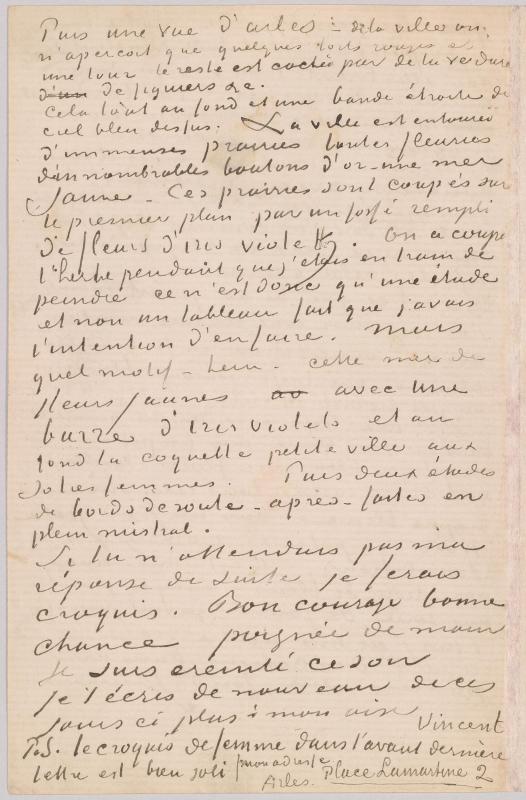 Puis une vue d'arles – de la ville on
n'apercoit que quelques toits rouges et
une tour le reste est cachée par de la verdure
de figuiers &c.
cela tout au fond et une bande étroite de
ciel bleu dessus. La ville est entourée
d'immenses prairies toutes fleuries
d'innombrables boutons d'or – une mer
jaune – Ces prairies sont coupés sur
le premier plan par un fossé rempli
de fleurs d'iris violets. On a coupé
l'herbe pendant que j'etais en train de
peindre ce n'est donc qu'une étude
et non un tableau fait que j'avais
l'intention d'en faire. Mais
quel motif – hein. cette mer de
fleurs jaunes avec une
barre d'iris violets et au
fond la coquette petite ville aux
jolies femmes. Puis deux études
de bords de route – après – faites en
plein mistral.
Si tu n'attendais pas ma
réponse de suite je ferais
croquis. Bon courage bonne
chance poignée de main
Je suis ereinté ce soir
je t'écris de nouveau de ces
jours ci plus à mon aise
Vincent
P.S. le croquis de femme dans l'avant dernière
lettre est bien joli
mon adresse
Arles. Place Lamartine 2